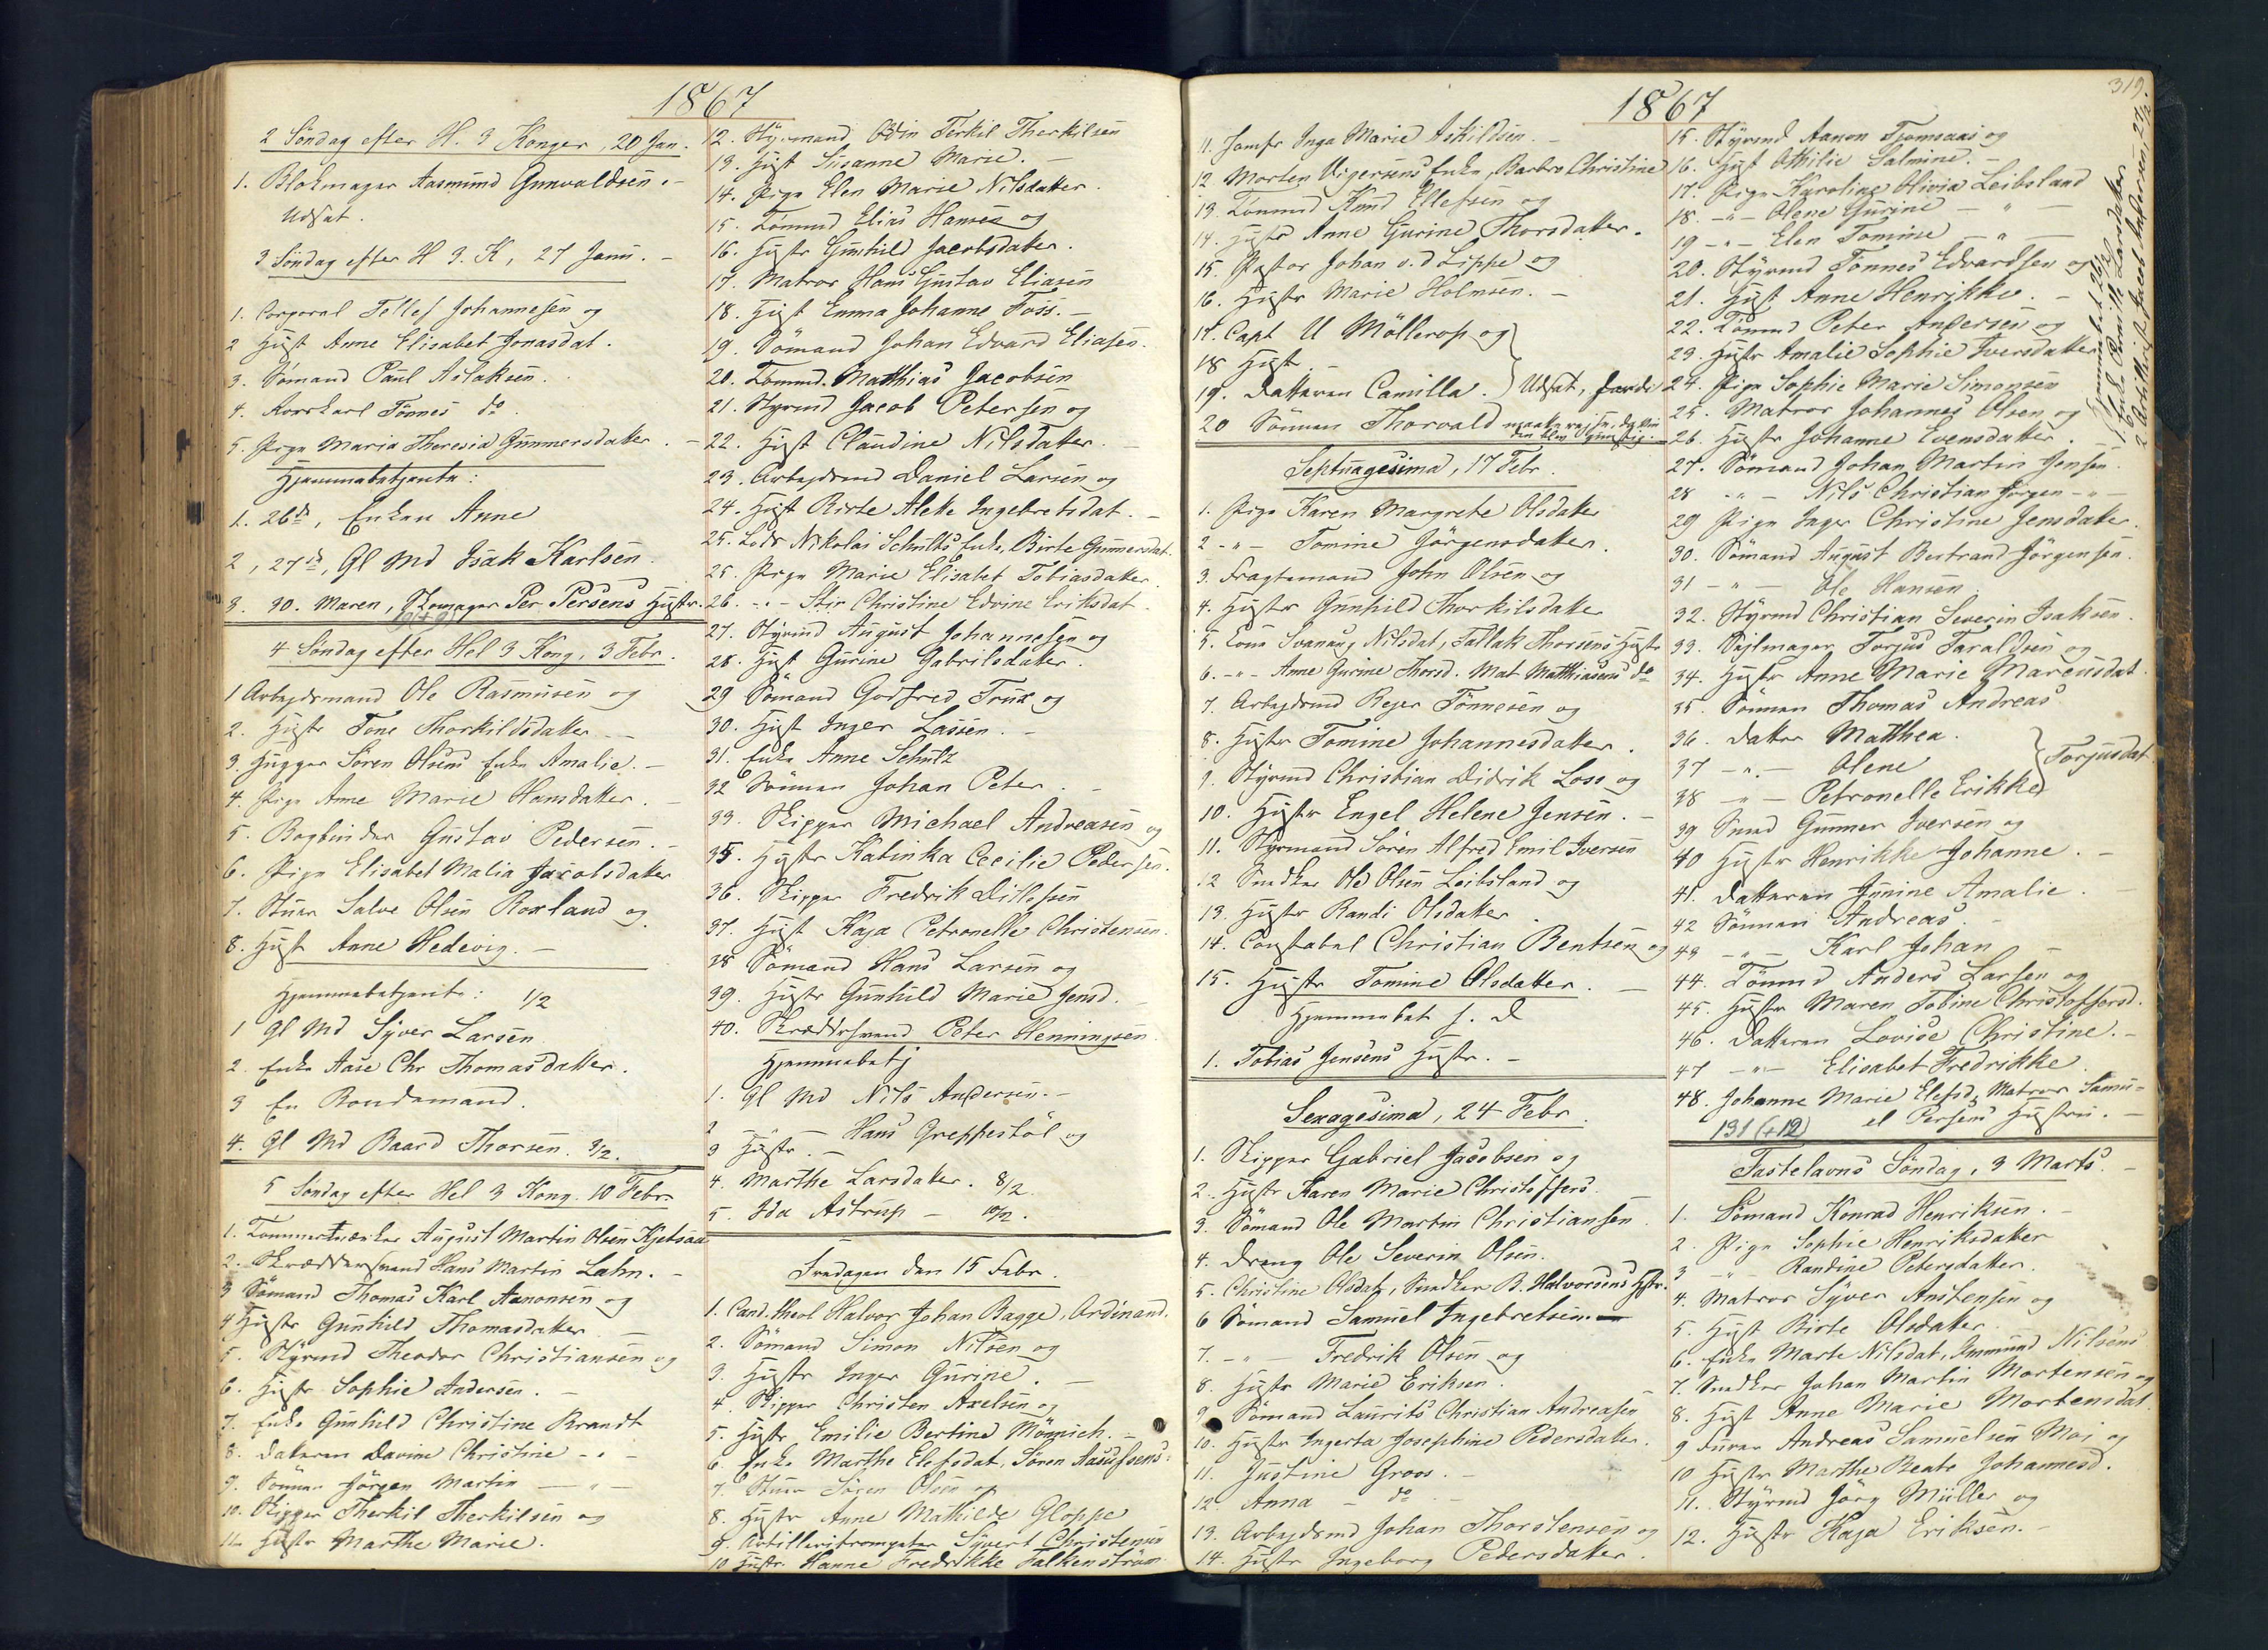 1867
2 Söndag efter H. 3 Konger, 20 Jan.
1. Blokmager Aasmund Gunvaldsen. -
Udsat.
3 Söndag efter H 3. K, 27 Janu. -
1. Corporal Tellef Johannesen og
2 Hust Anne Elisabet Jonasdat.
3. Sömand Paul Aslaksen.
4. Tönnes do.
5. Pige Maria Theresia Gunnersdatter. -
Hjemmebetjente:
1. 26de, Enken Anne
2, 27de, Gl Md Isak Karlsen.
3. 30. Maren, Skomager Per Persens Hustr.
4 Söndag efter Hel 3 Kong. 3 Febr.
1 Arbejdsmand Ole Rasmusen og
2. Hustr Tone Thorkildsdatter -
3. Hugger Sören Olsens Enke Amalie. -
4. Pige Anne Marie Hansdatter. -
5. Bogbinder Gustav Pedersen. -
6. Pige Elisabet Malia Jacobsdatter
7. Stuer Salve Olsen Roxland og
8. Hust Anne Hedevig. -
Hjemmebetjente: 1/2
1 Gl Md Syver Larsen
2. Enke Aase Chr Thomasdatter.
3 En Bondemand.
4. Gl Md Baard Thorsen. 3/2.
5 Söndag efter Hel 3 Kong. 10 Febr.
1. August Martin Olsen Kjetsaa
2. Skræddersvend Hans Martin Lahn. -
3 Sömand Thomas Karl Aanonsen og
4 Hustr Gunhild Thomasdatter -
5. Styrmd Theodor Christiansen og
6. Hustr Sophie Andersen. -
7. Enke Gunhild Christine Brandt
8. Datteren Davine Christine - " -
9. Sönnen Jörgen Martin - " -
10. Skipper Therkil Therkilsen og
11. Hustr Marthe Marie.
12. Styrmand Odin Terkil Therkilsen
13. Hust Susanne Marie. -
14. Pige Elen Marie Nilsdatter.
15. Tömmd Elias Hansen og
16. Hustr Gunhild Jacobsdatter.
17. Matros Hans Gustav Eliasen
18. Hust Emma Johanne Foss. -
19. Sömand Johan Edvard Eliasen.
20. Tömmd. Matthias Jacobsen
21. Styrmd Jacob Petersen og
22. Hust Claudine Nilsdatter.
23. Arbejdsmd Daniel Larsen og
24. Hust Birte Aleke Ingebretsdat. -
25. Lods Nikolai Schults Enke, Birte Gunnersdat.
25. Pige Marie Elisabet Tobiasdatter
26. - " - Stin Christine Edvine Eriksdat.
27. Styrmd August Johannesen og
28. Hust Gurine Gabrilsdatter.
29 Sömand Godfred Trux og
30. Hust Inger Lassen. -
31. Enke Anne Schulz
32 Sönnen Johan Peter. -
33. Skipper Michael Andreasen og
35. Hustr Katinka Cecilie Pedersen.
36. Skipper Fredrik Ditlefsen
37. Hust Kaja Petronelle Christensen.
38 Sömand Hans Larsen og
39. Hustr Gunhild Marie Jensd. -
40. Skræddersvend Peter Henningsen.
Hjemmebetj
1. Gl Md Nils Andersen. -
2 - - Hans Greppestöl og
3 Hustr. -
4. Marthe Larsdatter. 8/2.
5. Ida Astrup - 10/2.
Fredagen den 15 Febr.
1. Cand. theol Halvor Johan Bagge, Ordinand.
2. Sömand Simon Nilsen og
3. Hustr Inger Gurine. -
4. Skipper Christen Axelsen og
5. Hustr Emilie Bertine Mönnich. -
6. Enke Marthe Elefsdat, Sören Aasulfsens.
7. Stuer Sören Olsen og
8. Hustr Anne Mathilde Gloppe
9. Artilleritrompeter Syvert Christensen
10 Hustr Hanne Fredrikke Falkenström
1867
319.
11. Jomfr Inga Marie Askildsen. -
12 Morten Vigersens Enke, Barbro Christine
13. Tömmd Knud Ellefsen og
14. Hustr Anne Gurine Thorsdatter.
15. Pastor Johan v. d Lippe og
16. Hustr Marie Holmsen. -
17. Capt U Möllerop og
18 Hustr. -
19. Datteren Camilla. Udsat, fordi
20 Sönnen Thorvald
Septuagesima, 17 Febr.
1. Pige Karen Margrete Olsdatter
2 - " - Tomine Jörgensdatter.
3. Fragtemand John Olsen og
4. Hustr Gunhild Thorkilsdatter
5. Kone Svanaug Nilsdat, Tallak Thorsens Hustr
6. - " - Anne Gurine Thorsd. Mat Matthiasens do
7. Arbejdsmd Rejer Tönnesen og
8. Hustr Tomine Johannesdatter.
9. Styrmd Christian Didrik Loss og
10. Hustr Engel Helene Jensen. -
11. Styrmand Sören Alfred Emil Iversen
12 Snedker Ole Olsen Leibsland og
13. Hustr Randi Olsdatter.
14. Constabel Christian Bentsen og
15. Hustr Tomine Olsdatter. -
Hjemmebet s. D
1. Tobias Jensens Hustr. -
Sexagesima, 24 Febr.
1. Skipper Gabriel Jacobsen og
2. Hustr Karen Marie Christoffers.
3. Sömand Ole Martin Christiansen.
4. Dreng Ole Severin Olsen.
5. Christine Olsdat, Snedker B. Halvorsens Hustr.
6 Sömand Samuel Ingebretsen. -
7. - " - Fredrik Olsen og
8. Hustr Marie Eriksen.
9 Sömand Laurits Christian Andreasen
10. Hustr Ingerta Josephine Pedersdatter.
11. Justine Groos. -
12. Anna - do -
13. Arbejdsmd Johan Thorstensen og
14. Hustr Ingeborg Pedersdatter.
15. Styrmd Aanon Tjomsaas og
16. Hust Othilie Salmine. -
17. Pige Karoline Olivia Leibsland
18. - " - Olene Gurine - " -
19 - " - Elen Tomine - " -
20. Styrmd Tönnes Edvardsen og
21. Hust Anne Henrikke. -
22. Tömmd Peter Andersen og
23. Hustr Amalie Sophie Iversdatter
24. Pige Sophie Marie Simonsen
25. Matros Johannes Olsen og
26. Hustr Johanne Evensdatter.
27. Sömand Johan Martin Jensen.
28 - " - Nils Christian Jörgen - " -
29 Pige Inger Christine Jensdatter.
30. Sömand August Bertrand Jörgensen.
31 - " - Ole Hansen.
32. Styrmd Christian Severin Isaksen.
33. Sejlmager Torjus Taraldsen og
34. Hustr Anne Marie Marcusdat.
35. Sönnen Thomas Andreas
36. Datter Matthea.
37 - " - Olene Torjusdat.
38 - " - Petronelle Erikke
39 Smed Gunner Iversen og
40 Hustr Henrikke Johanne. -
41. Datteren Junine Amalie. -
42 Sönnen Andreas. -
43 - " - Karl Johan -
44. Tömmd Anders Larsen og
45. Hustr Maren Tobine Christoffersd.
46. Datteren Lovise Christine. -
47 - " - Elisabet Fredrikke.
48. Johanne Marie Elefsd, Matros Samu=
131 (+12) el Persens Hustru. -
Fastelavns Söndag, 3 Marts. -
1. Sömand Konrad Henriksen. -
2. Pige Sophie Henriksdatter
3 - " - Randine Petersdatter.
4. Matros Syver Anstensen og
5. Hust Birte Olsdatter
6. Enke Marte Nilsdat, Nilsens
7. Snedker Johan Martin Mortensen og
8. Hust Anne Marie Mortensdat.
9 Furer Andreas Samuelsen Moi og
10 Hustr Marthe Beate Johannesd.
11. Styrmd Jörg Müller og
12. Hustr Kaja Eriksen. -
Hjemmebet 26/2
1. Enke Pernille Larsdatter
2 Artillerist Jacob Andersen, 27/2.